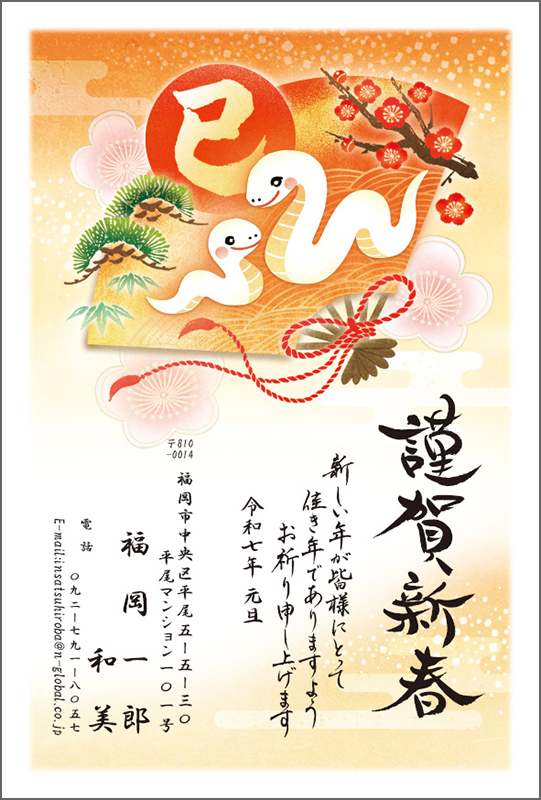 巳
謹賀新春
新しい年が皆様にとって
佳き年でありますよう
お祈り申し上げます
令和七年 元旦
〒810
-0014
福岡市中央区平尾五-五-三〇
平尾マンション一〇一号
福岡 一郎
和美
電話 〇九二-七九一-八〇五七
E-mail:insatsuhiroba@n-global.co.jp